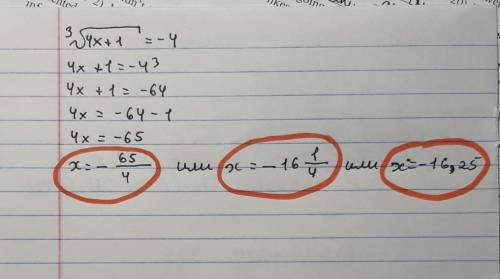 ³√4x+1 = -4
4x + 1 = -4³
4x + 1 = -64
4x = -64 - 1
4x = -65
x = - 65/4 или x = -16 1/4 или x = -16,25